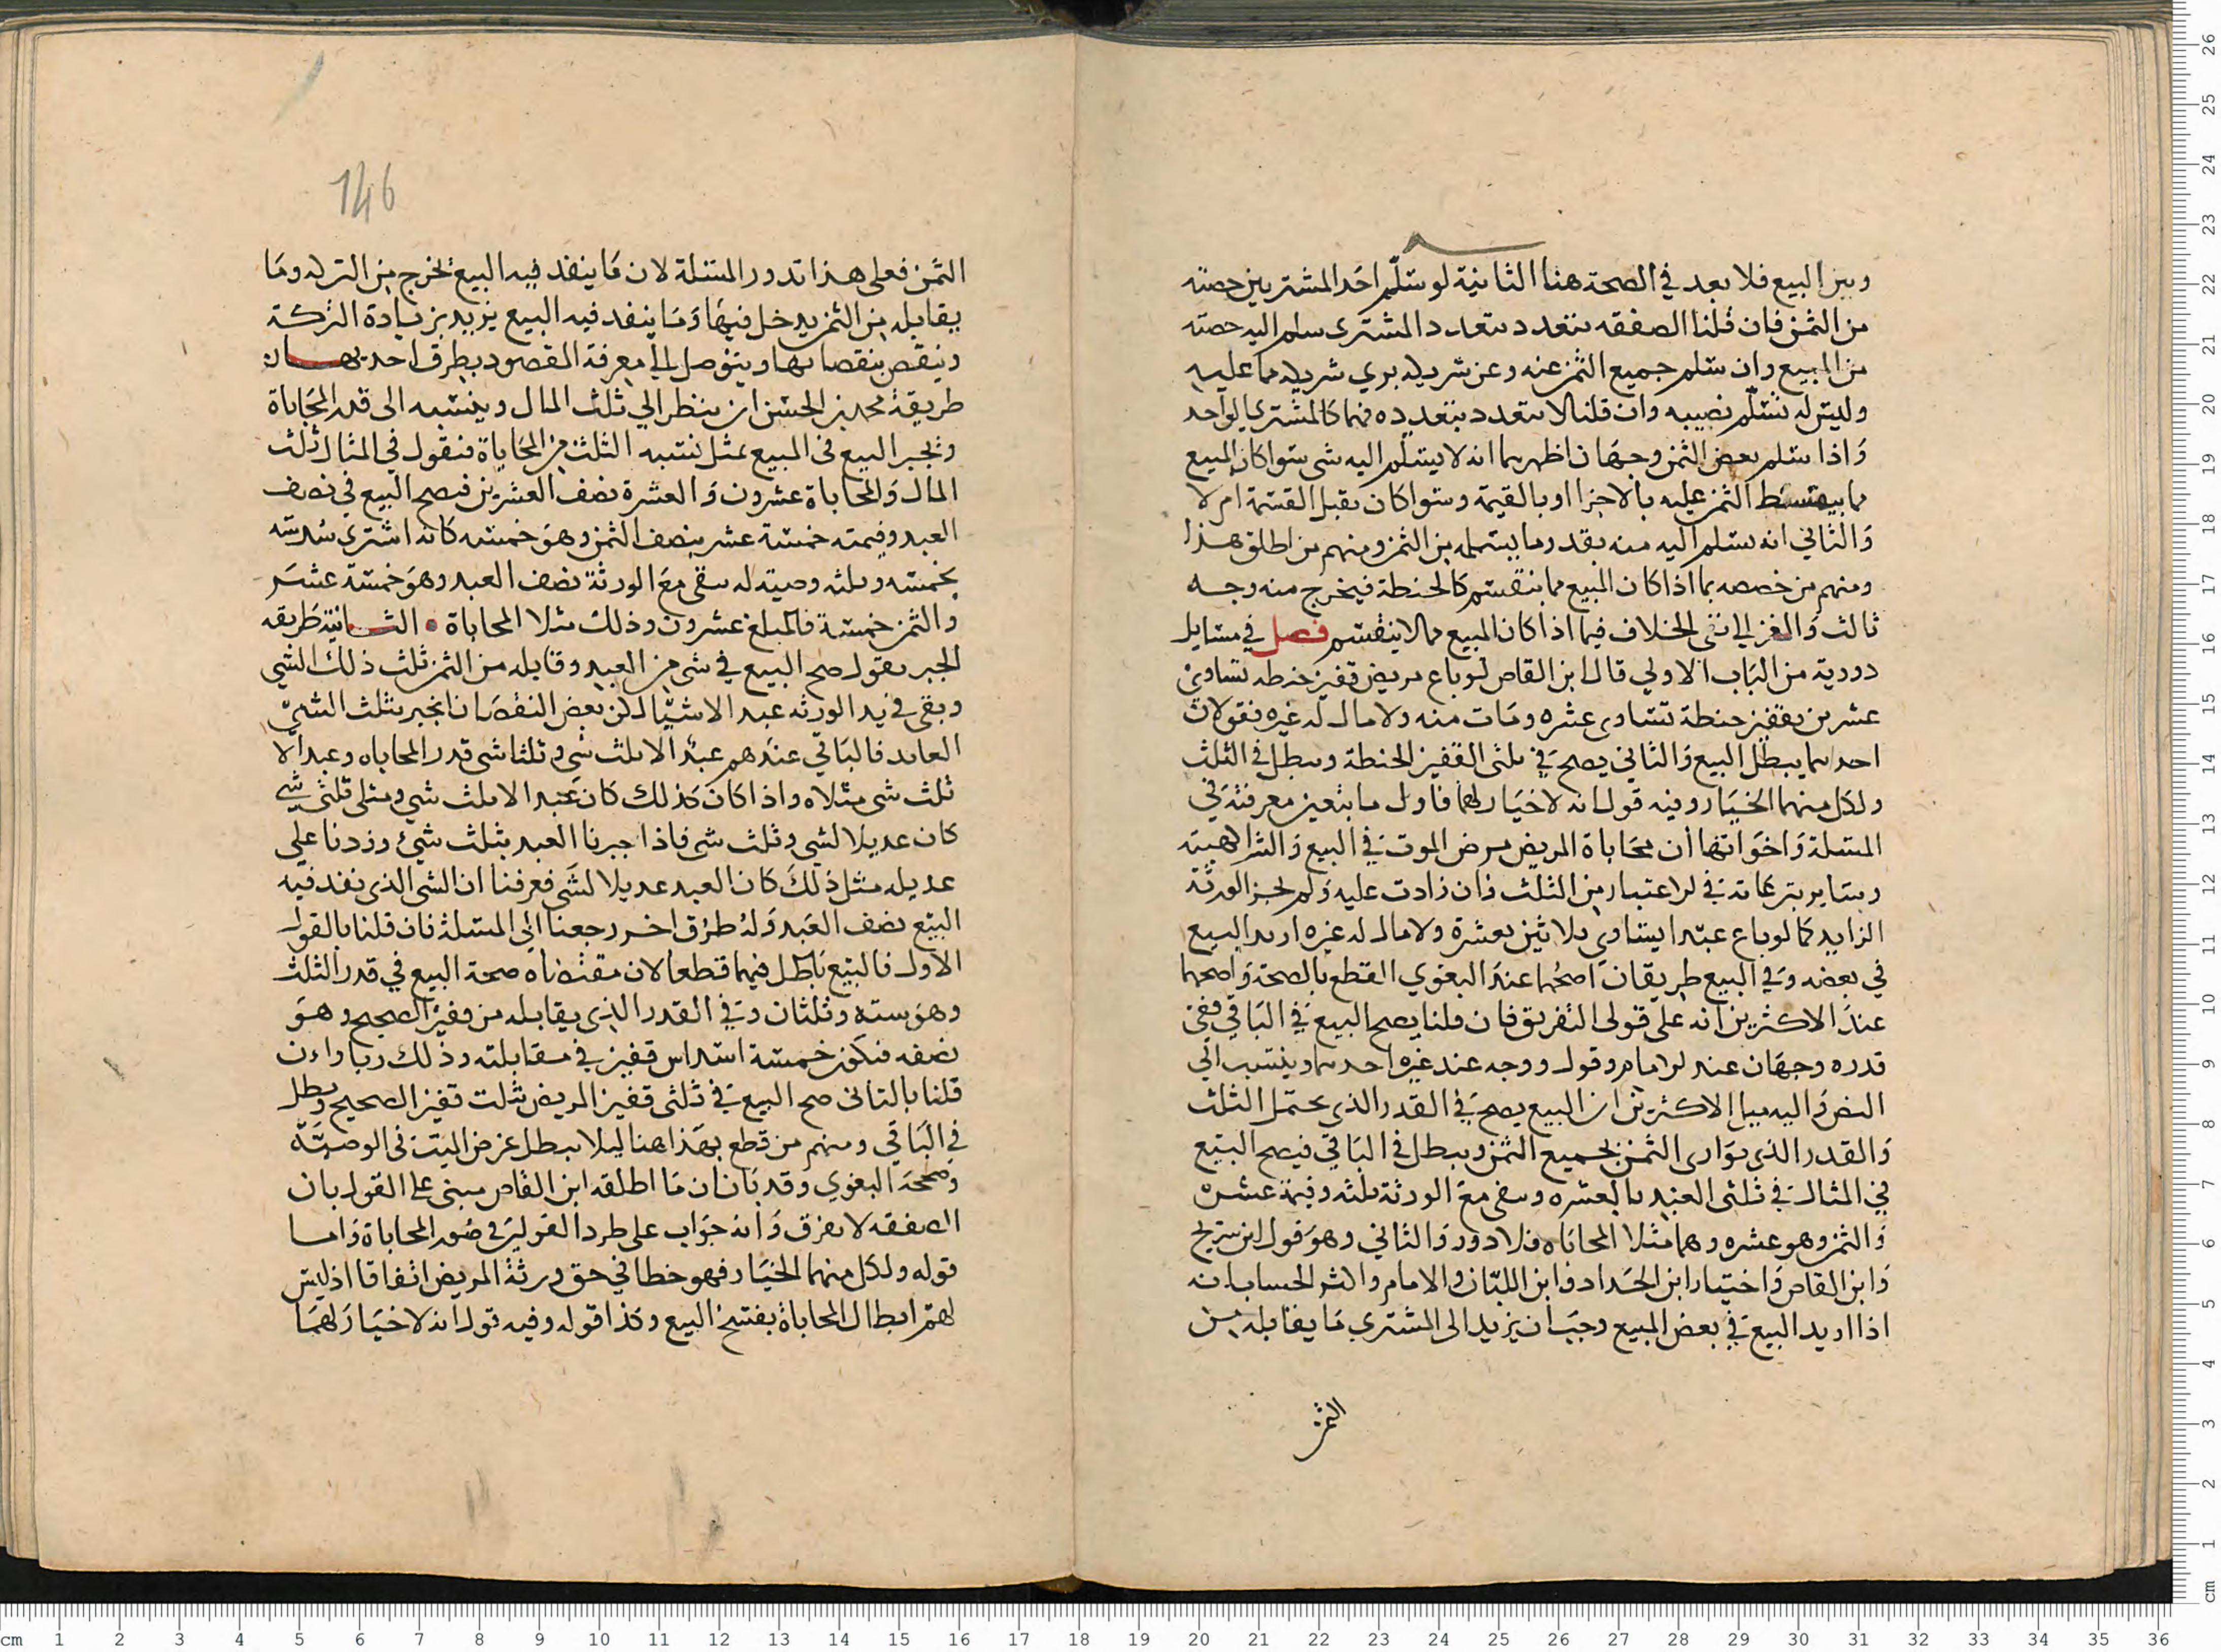 وبين البيع فلا بعد في الصحة هنا الثانية لو سلّم احد المشتريين حصته
من الثمن فان قلنا الصفقه تتعدد بتعدد المشتري سلم اليه حصته
من المبيع وان سلم جميع الثمن عنه وعن شريكه بري شريكه مما عليه
وليس له تسلّم نصيبه وان قلنا لا تتعدد بتعدده فهما كالمشتري الواحد
واذا سلم بعض الثمن وجهان اظهرهما انه لا يسلّم اليه شي سوا كان المبيع
مما يقسط الثمن عليه بالاجزا او بالقيمة وسوا كان يقبل القسمة ام لا
والثاني انه يسلم اليه منه بقدر ما يسلمه من الثمن ومنهم من اطلق هذا
ومنهم من خصصه بما اذا كان المبيع مما ينقسم كالحنطة فيخرج منه وجه
ثالث والغزالي نفى الخلاف فيما اذا كان المبيع مما لا ينقسم فصل في مسايل
دورية من الباب الاولي قال ابن القاص لو باع مريض قفيز حنطه تساوي
عشرين بقفيز حنطة تساوي عشره ومات منه ولا مال له غيره فقولان
احدهما يبطل البيع والثاني يصح في ثلثي القفيز الحنطة ويبطل في الثلث
ولكل منهما الخيار وفيه قول انه لا خيار لهما فاول ما يتعين معرفته في
المسلة واخواتها ان محاباة المريض مرض الموت في البيع والشرا كهبته
وساير تبرعاته في الاعتبار من الثلث فان زادت عليه ولم يجز الورثة
الزايد كما لو باع عبدا يساوي ثلاثين بعشرة ولا مال له غيره ارتد البيع
في بعضه وفي البيع طريقان اصحهما عند البغوي القطع بالصحة واصحهما
عند الاكثرين انه على قولي التفريق فان قلنا يصح البيع في الباقي ففي
قدره وجهان عند الامام وقول ووجه عند غيره احدهما وينسب الى
النص واليه ميل الاكثرين ان البيع يصح في القدر الذي يحتمل الثلث
والقدر الذي يوازي الثمن بجميع الثمن ويبطل في الباقي فيصح البيع
في المثال في ثلثي العبد بالعشره ويبقى مع الورثة ثلثه وقيمة عشرة
والثمن وهو عشره وهما مثلا المحاباه فلا دور والثاني وهو قول ابن سريج
وابن القاص واختيار ابن الحداد وابن اللبان والامام واكثر الحساب انه
اذا اريد البيع في بعض المبيع وجب ان يزيد الى المشتري ما يقابله من
الثمن
146
الثمن فعلى هذا تدور المسلة لان ما ينفد فيه البيع يخرج من التركه وما
يقابله من الثمن يدخل فيها وما ينفد فيه البيع يزيد بزيادة التركة
وينقص بنقصانها ويتوصل الي معرفة المقصود بطرق احديهما
طريقة محمد بن الحسن ان ينظر الي ثلث المال وينسبه الى قدر المحاباة
ويجيز البيع في المبيع بمثل نسبه الثلث من المحاباة فنقول في المثال ثلث
المال والمحاباة عشرون والعشرة نصف العشرين فيصح البيع في نصف
العبد وقيمته خمسة عشر بنصف الثمن وهو خمسه كانه اشترى سدسه
بخمسه وثلثه وصية له يبقى مع الورثة نصف العبد وهو خمسة عشر
والثمن خمسة فالمبلغ عشرون وذلك مثلا المحاباة الثانية طريقه
الجبر يقول صح البيع في شي من العبد وقابله من الثمن ثلث ذلك الشي
وبقي في يد الورثه عبد الا شيّا لكن بعض النقصان انجبر بثلث الشي
العايد فالباقي عندهم عبد الا ثلثي شي وثلثا شي قدر المحاباه وعبد الا
ثلث شي مثلاه واذا كان كذلك كان عبد الا ثلث شي ومثلي ثلثي شي
كان عديلا لشي وثلث شي فاذا جبرنا العبد بثلث شي وزدنا علي
عديله مثل ذلك كان العبد عديلا لشي فعرفنا ان الشي الذي نفد فيه
البيع نصف العبد وله طرق اخر رجعنا الى المسلة فان قلنا بالقول
الاول فالبيع باطل فيهما قطعا لان مقتضاه صحة البيع في قدر الثلث
وهو سته وثلثان وفي القدر الذي يقابله من قفيز الصحيح وهو
نصفه فيكون خمسة اسداس قفيز في مقابلته وذلك ربا وان
قلنا بالثاني صح البيع في ثلثي قفيز المريض بثلث قفيز الصحيح وبطل
في الباقي ومنهم من قطع بهذا هنا ليلا يبطل غرض الميت في الوصيّة
وصححه البغوي وقد بان ان ما اطلقه ابن القاص مبني على القول بان
الصفقه لا تفرق وانه جواب على طرد القولين في صور المحاباة واما
قوله ولكل منهما الخيار فهو خطا في حق ورثة المريض اتفاقا اذ ليس
لهم ابطال المحاباة بفسخ البيع وكذا قوله وفيه قول انه لا خيار لهما